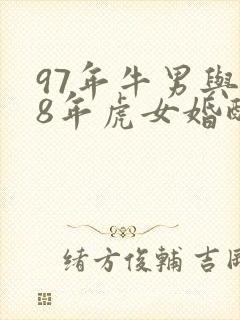 97年牛男與
8年虎女婚配
緒方俊輔 吉岡